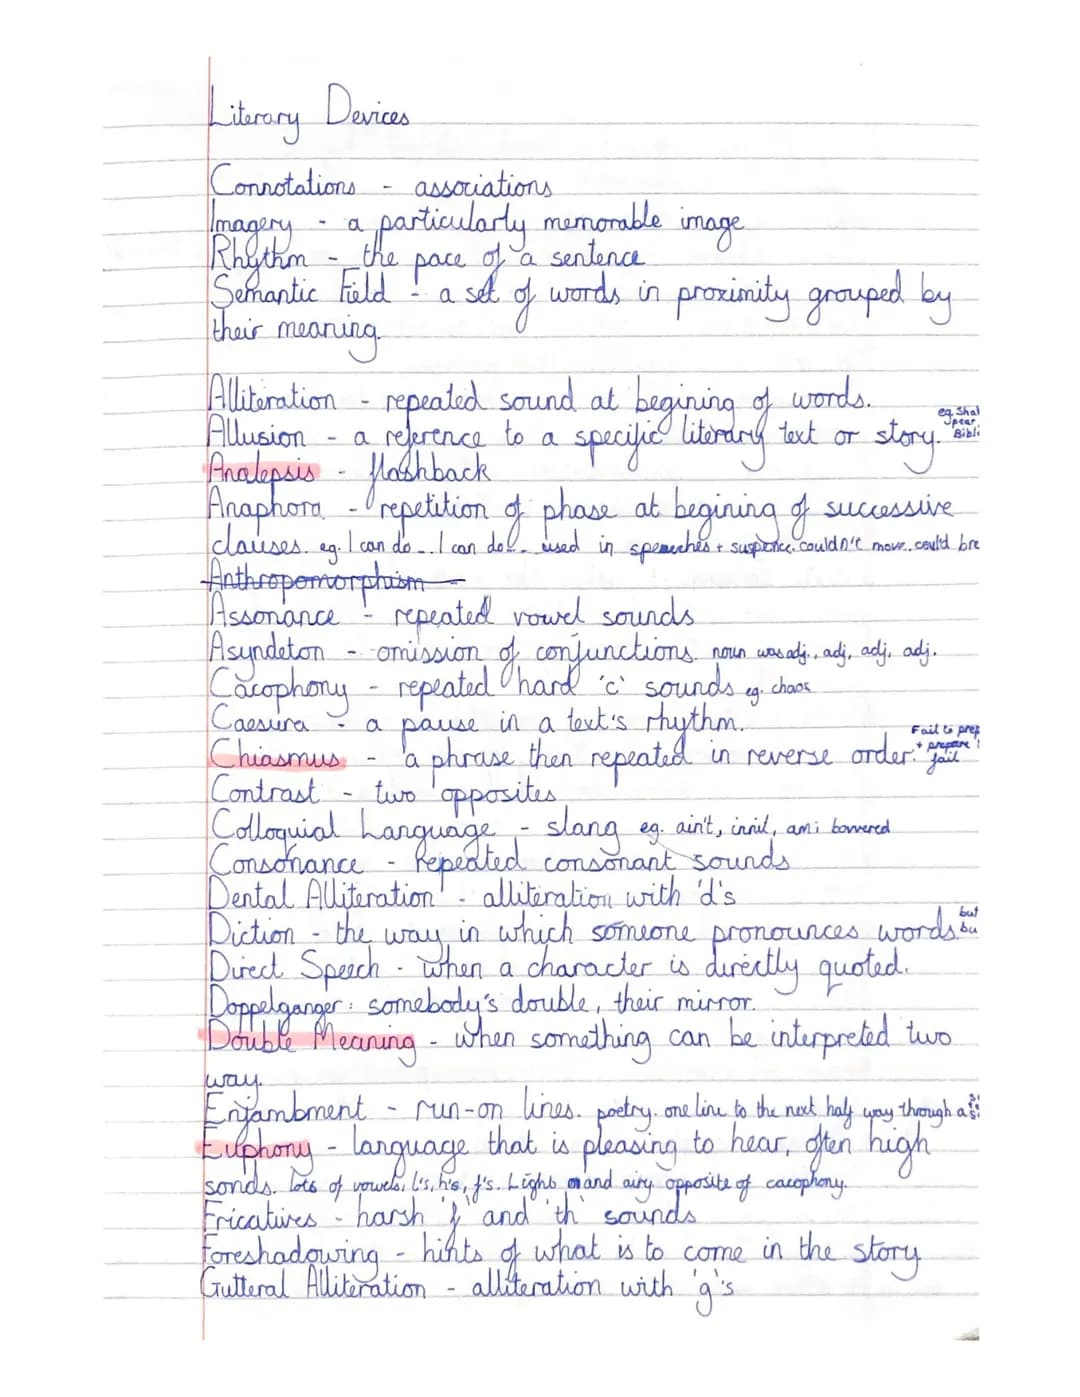 Literary Devices
Connotations - associations
Imagery - a particularly memorable image
Rhythm - the pace of a sentence
Semantic Field - a set of words in proximity grouped by
their meaning.
Alliteration - repeated sound at begining of words.
Allusion - a reference to a specific literary text or story. eg. Shak
pear
Bibli
Analepsis - flashback
Anaphora - repetition of phase at begining of successive
clauses. eg. I can do... I can do... used in + suspence. couldn't move.. could bre
Anthropomorphism
Assonance - repeated vowel sounds
Asyndeton - omission of conjunctions. noun was adj., adj, adj, adj.
Cacophony - repeated hard 'c' sounds eg. chaos
Caesura - a pause in a text's rhythm.
Chiasmus - a phrase then repeated in reverse order. Fail to prep
+ prepare
fail
Contrast - two opposites
Colloquial Language - slang eg. ain't, innit, am i bovvered
Consonance - repeated consonant sounds
Dental Alliteration - alliteration with 'd's
Diction - the way in which someone pronounces words. but
bu
Direct Speech - when a character is directly quoted.
Doppelganger: somebody's double, their mirror.
Double Meaning - when something can be interpreted two
way.
Enjambment - run-on lines. poetry. one line to the next half way through a
Euphony - language that is pleasing to hear, often high
sonds. lots of vowels, l's, h's, f's. Light and airy opposite of cacophony.
Fricatives - harsh 'f' and 'th' sounds
Foreshadowing - hints of what is to come in the story
Gutteral Alliteration - alliteration with 'g's